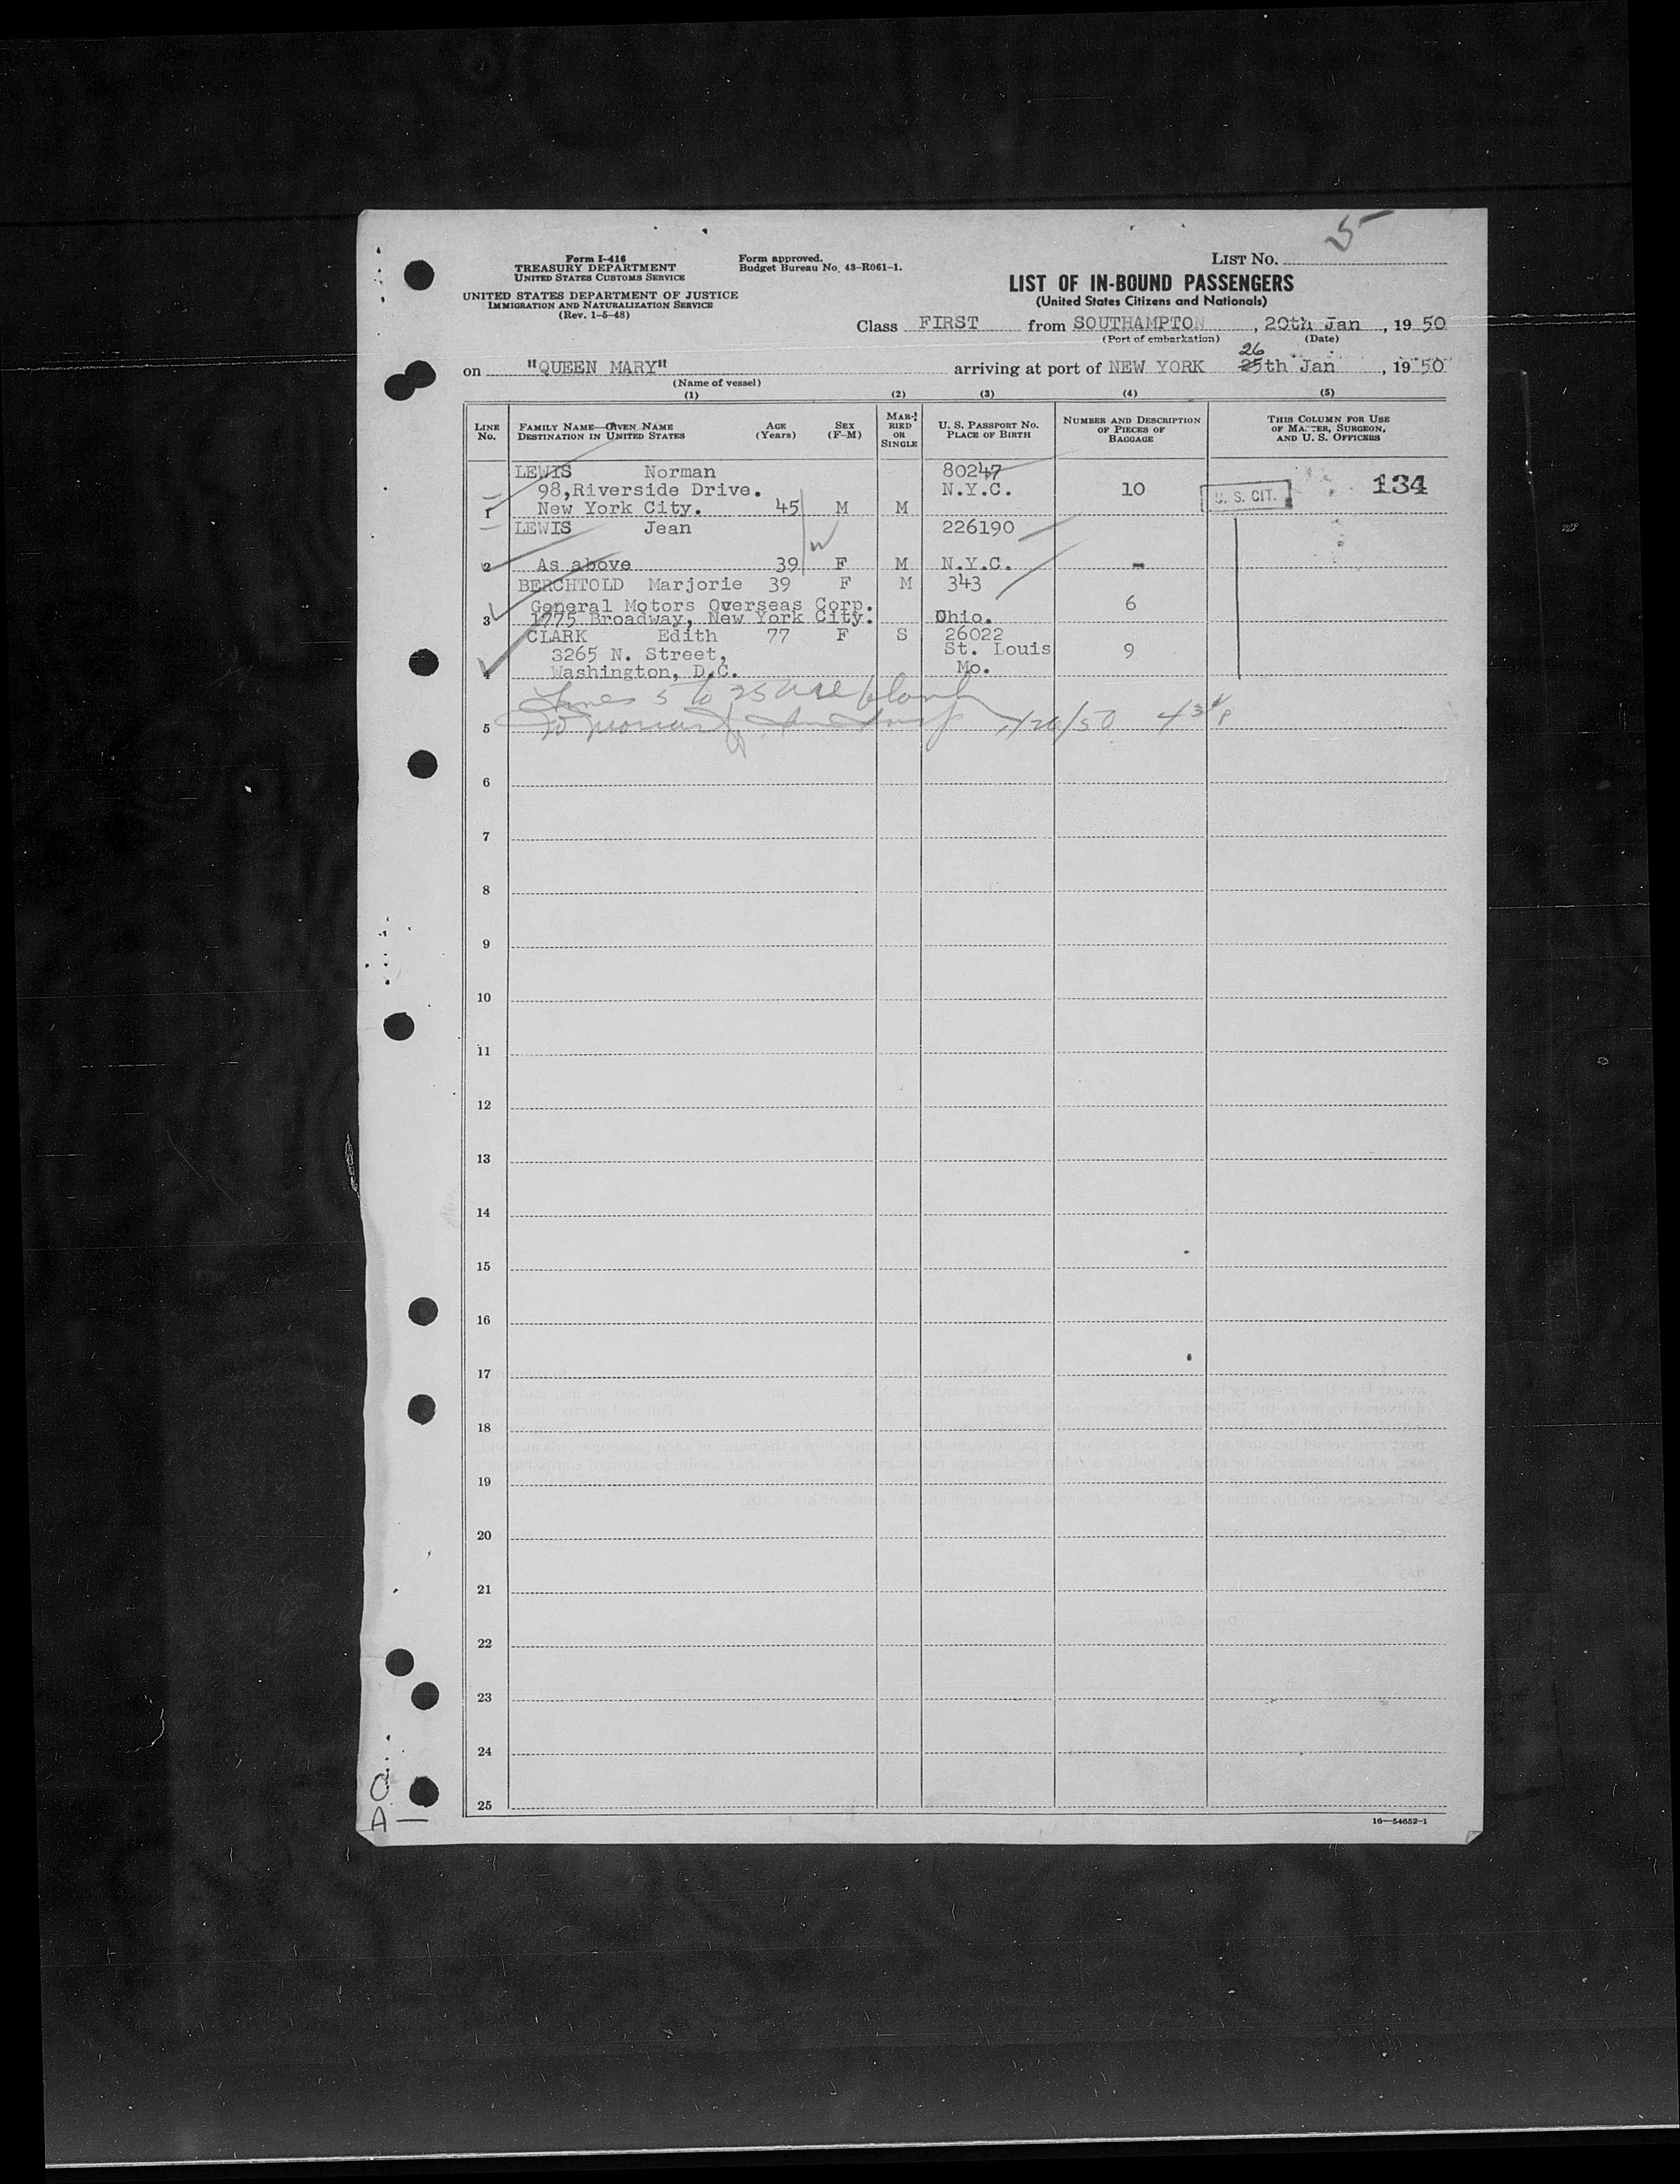 5
Form I-416
TREASURY DEPARTMENT
UNITED STATES CUSTOMS SERVICE
UNITED STATES DEPARTMENT OF JUSTICE
IMMIGRATION AND NATURALIZATION SERVICE
(Rev. 1-5-48)
Form approved.
Budget Bureau No. 43-R061-1.
LIST NO.
LIST OF IN-BOUND PASSENGERS
(United States Citizens and Nationals)
Class FIRST from SOUTHAMPTON, 20th Jan, 19 50
(Port of embarkation) (Date)
26
on "QUEEN MARY" arriving at port of NEW YORK 25th Jan, 19 50
(Name of vessel)
(1) (2) (3) (4) (5)
LINE No.
FAMILY NAME—GIVEN NAME
DESTINATION IN UNITED STATES
AGE (Years)
SEX (F-M)
MARRIED OR SINGLE
U. S. PASSPORT NO.
PLACE OF BIRTH
NUMBER AND DESCRIPTION OF PIECES OF BAGGAGE
THIS COLUMN FOR USE OF MASTER, SURGEON, AND U. S. OFFICERS
LEWIS Norman 80247
98,Riverside Drive. N.Y.C. 10 U. S. CIT. 134
1 New York City. 45 M M
LEWIS Jean 226190
2 As above 39 F M N.Y.C. -
BERCHTOLD Marjorie 39 F M 343
General Motors Overseas Corp. 6
3 1775 Broadway, New York City. Ohio.
CLARK Edith 77 F S 26022
3265 N. Street, St. Louis 9
4 Washington, D.C. Mo.
Lines 5 to 25 are blank
5 1/26/50
6
7
8
9
10
11
12
13
14
15
16
17
18
19
20
21
22
23
24
25
O
A —
16—54652-1